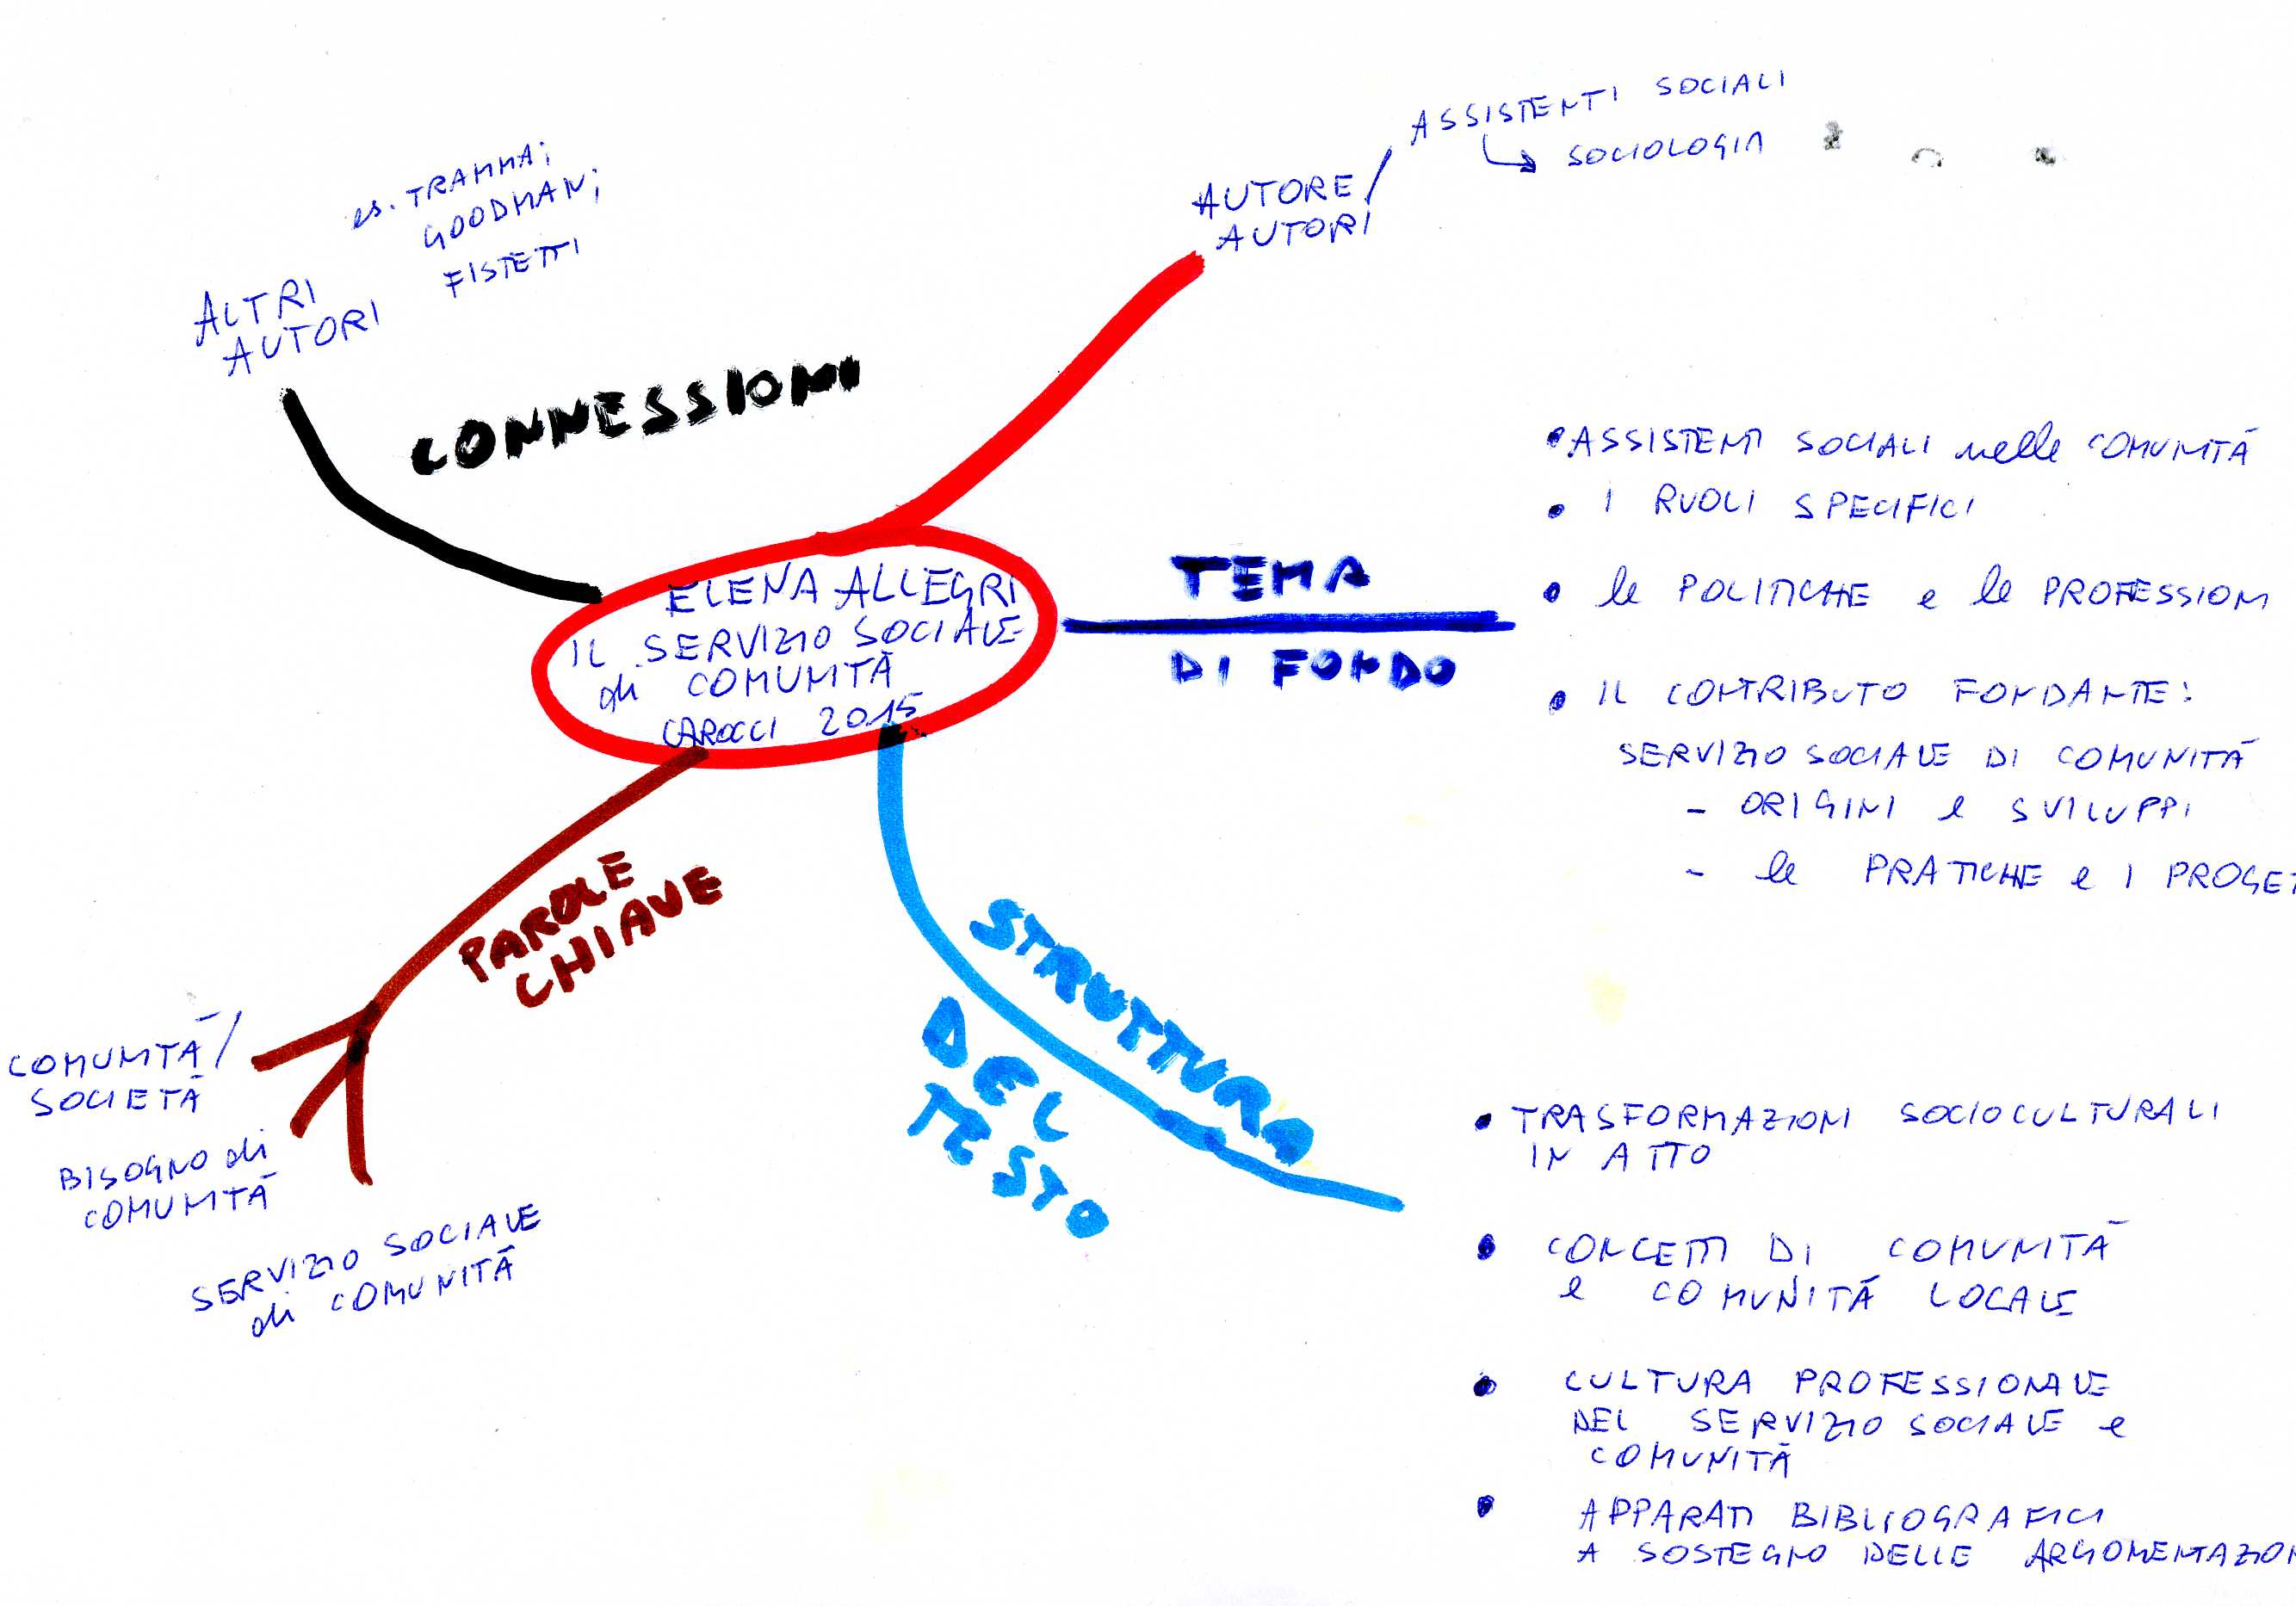 ASSISTENTI SOCIALI
SOCIOLOGIA
AUTORE /
AUTORI
es. TRAMMA;
GOODMAN;
FISTETTI
ALTRI
AUTORI
CONNESSIONI
ELENA ALLEGRI
IL SERVIZIO SOCIALE
di COMUNITÀ
CAROCCI 2015
TEMA
DI FONDO
• ASSISTENTI SOCIALI nelle COMUNITÀ
• I RUOLI SPECIFICI
• le POLITICHE e le PROFESSIONI
• IL CONTRIBUTO FONDANTE:
SERVIZIO SOCIALE DI COMUNITÀ
- ORIGINI e SVILUPPI
- le PRATICHE e I PROGET
PAROLE
CHIAVE
COMUNITÀ /
SOCIETÀ
BISOGNO di
COMUNITÀ
SERVIZIO SOCIALE
di COMUNITÀ
STRUTTURA
DEL
TESTO
• TRASFORMAZIONI SOCIOCULTURALI
IN ATTO
• CONCETTI DI COMUNITÀ
e COMUNITÀ LOCALE
• CULTURA PROFESSIONALE
DEL SERVIZIO SOCIALE e
COMUNITÀ
• APPARATI BIBLIOGRAFICI
A SOSTEGNO DELLE ARGOMENTAZION